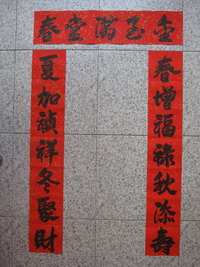 金玉滿堂春
春增福祿秋添壽
夏加禎祥冬聚財